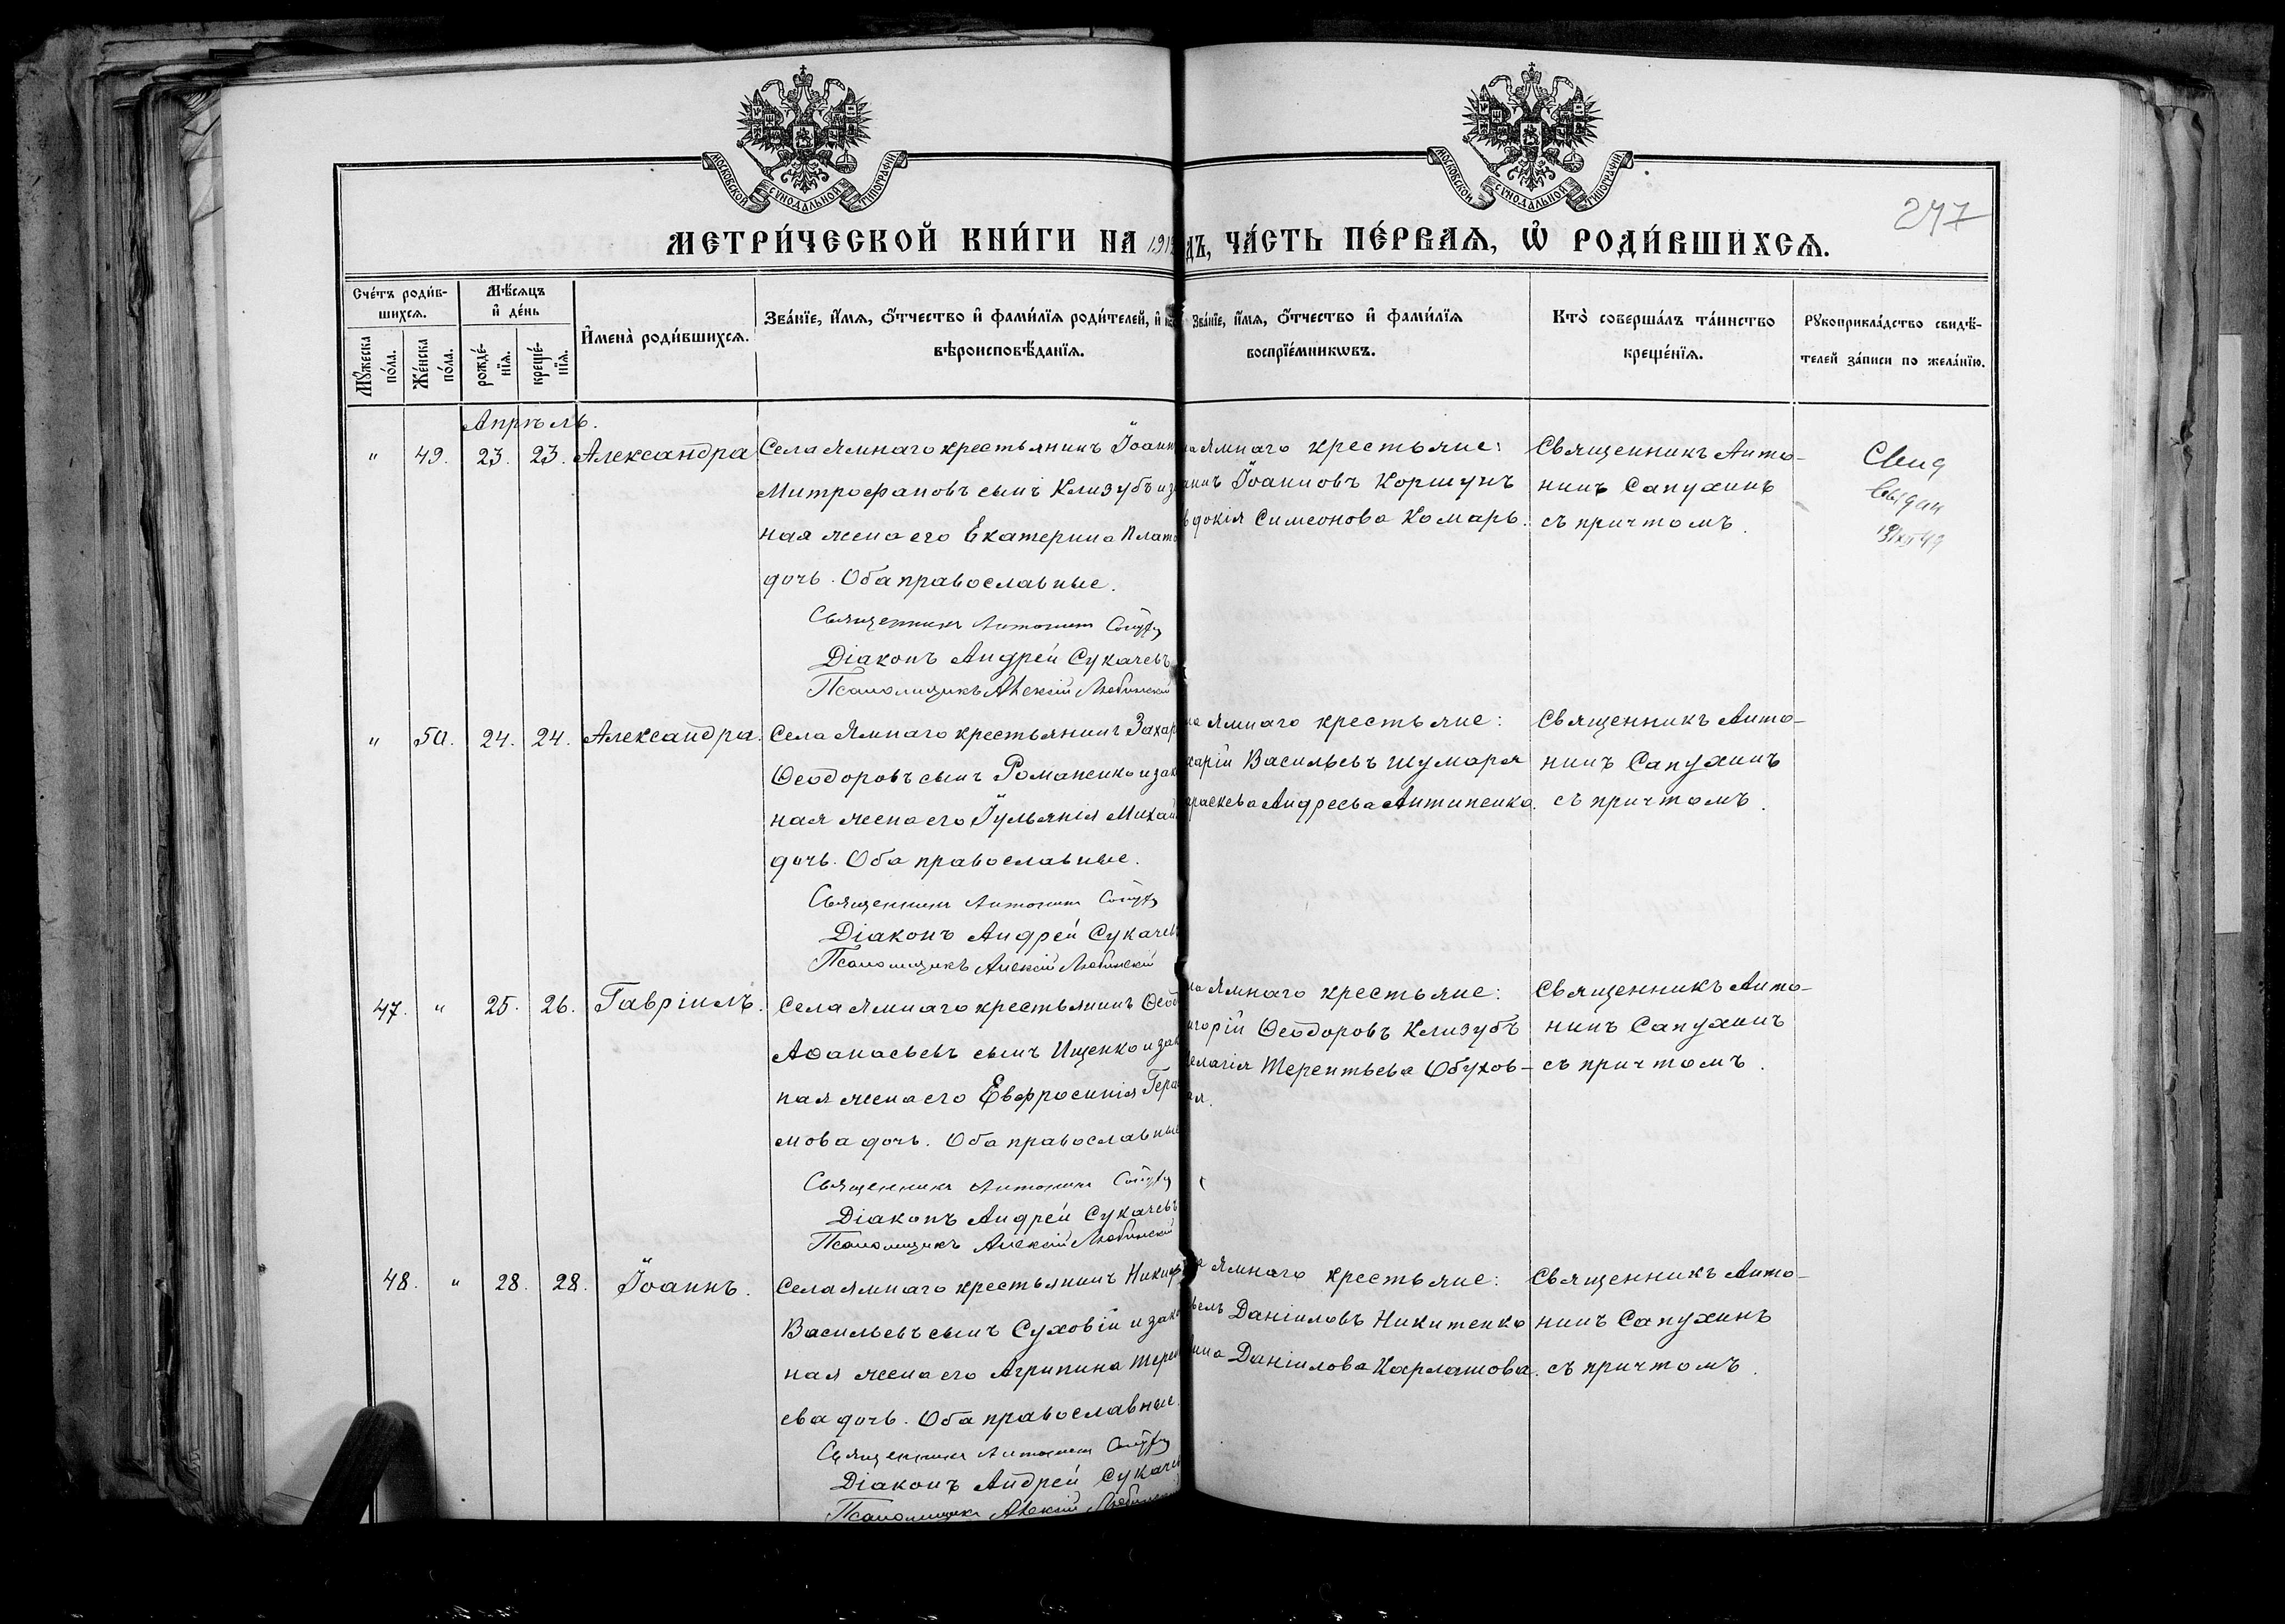 МОСКОВСКОЙ СѴНОДАЛЬНОЙ ТИПОГРАФІИ
МОСКОВСКОЙ СѴНОДАЛЬНОЙ ТИПОГРАФІИ
247
МЕТРИ́ЧЕСКОЙ КНИ́ГИ НА 191
дъ, ЧА́СТЬ ПЕ́РВАѦ, Ѡ҆ РОДИ́ВШИХСѦ.
Сче́тъ роди́в-
шихсѧ.
Мꙋ́жеска по́ла.
Же́нска по́ла.
Мѣ́сѧцъ
и҆ де́нь
рожде́-
нїѧ.
креще́-
нїѧ.
И҆мена̀ роди́вшихсѧ.
Зва́нїе, и҆́мѧ, ѻ҆́тчество и҆ фами́лїѧ роди́телей, и҆
вѣроисповѣ́данїѧ.
Зва́нїе, и҆́мѧ, ѻ҆́тчество и҆ фами́лїѧ
воспрїе́мникѡвъ.
Кто̀ соверша́лъ та́инство
креще́нїѧ.
Рꙋкоприкла́дство свидѣ́-
телей за́писи по жела́нїю.
Апрѣль.
" 49. 23. 23. Александра
Села Ямнаго крестьянинъ Іоанн
Митрофановъ сынъ Клизубъ и за
ная жена его Екатерина Плато
дочь. Оба православные.
Священникъ Антонинъ
Діаконъ Андрей Сукачевъ
Псаломщикъ Алексій Любинскій
Ямнаго крестьяне:
Іоанновъ Коршунъ
вдокія Симеонова Комарь.
Священникъ Анто-
нинъ Сапухинъ
съ причтомъ.
Свид
выдан
" 50. 24. 24. Александра.
Села Ямнаго крестьянинъ Захар
Ѳеодоровъ сынъ Романенко и зак
ная жена его Іульянія Михай
дочь. Оба православные.
Священникъ Антонинъ
Діаконъ Андрей Сукачевъ
Псаломщикъ Алексій Любинскій
Ямнаго крестьяне:
харій Васильевъ Шумара
араскева Андреева Антипенко.
Священникъ Анто-
нинъ Сапухинъ
съ причтомъ.
47. " 25. 26. Гавріилъ.
Села Ямнаго крестьянинъ Ѳеод
Аѳанасьевъ сынъ Ищенко и зак
ная жена его Евфросинія Гера
мова дочь. Оба православные
Священникъ Антонинъ
Діаконъ Андрей Сукачевъ
Псаломщикъ Алексій Любинскій
Ямнаго крестьяне:
игорій Ѳеодоровъ Клизубъ
елагія Терентьева Обухов-
ая.
Священникъ Анто-
нинъ Сапухинъ
съ причтомъ.
48. " 28. 28. Іоаннъ.
Села Ямнаго крестьянинъ Никиф
Васильевъ сынъ Суховій и зако
ная жена его Агрипина Терен
ева дочь. Оба православные.
Священникъ Антонинъ
Діаконъ Андрей Сукачев
Псаломщикъ Алексій Любинскій
Ямнаго крестьяне:
велъ Даніиловъ Никитенко
Даніилова Карлашова.
Священникъ Анто-
нинъ Сапухинъ
съ причтомъ.